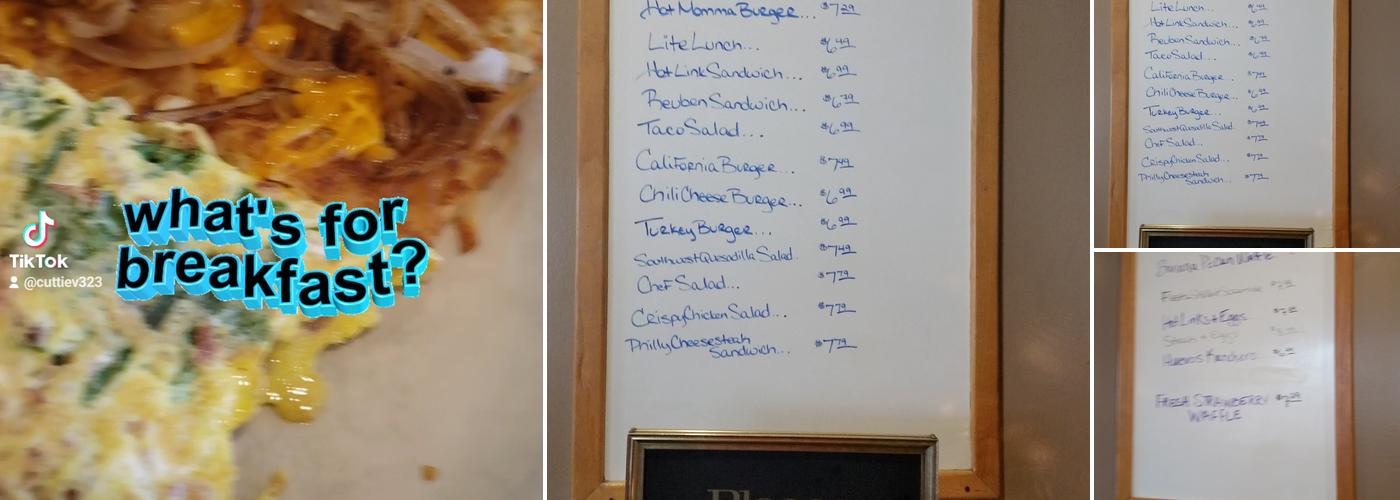 what's for
breakfast?
TikTok
@cuttiev323
Hot Momma Burger... $7.29
Lite Lunch... $6.49
Hot Link Sandwich... $6.99
Reuben Sandwich... $6.79
Taco Salad... $6.99
California Burger... $7.49
Chili Cheese Burger... $6.99
Turkey Burger... $6.99
Southwest Quesadilla Salad. $7.49
Chef Salad... $7.79
Crispy Chicken Salad... $7.79
Philly Cheesesteak
Sandwich... $7.79
Lite Lunch...
Hot Link Sandwich...
Reuben Sandwich...
Taco Salad...
California Burger...
Chili Cheese Burger...
Turkey Burger...
Southwest Quesadilla Salad.
Chef Salad...
Crispy Chicken Salad...
Philly Cheesesteak
Sandwich...
Pecan Waffle
Hot Links & Eggs
Steak & Eggs
Huevos Rancheros
FRESH STRAWBERRY
WAFFLE